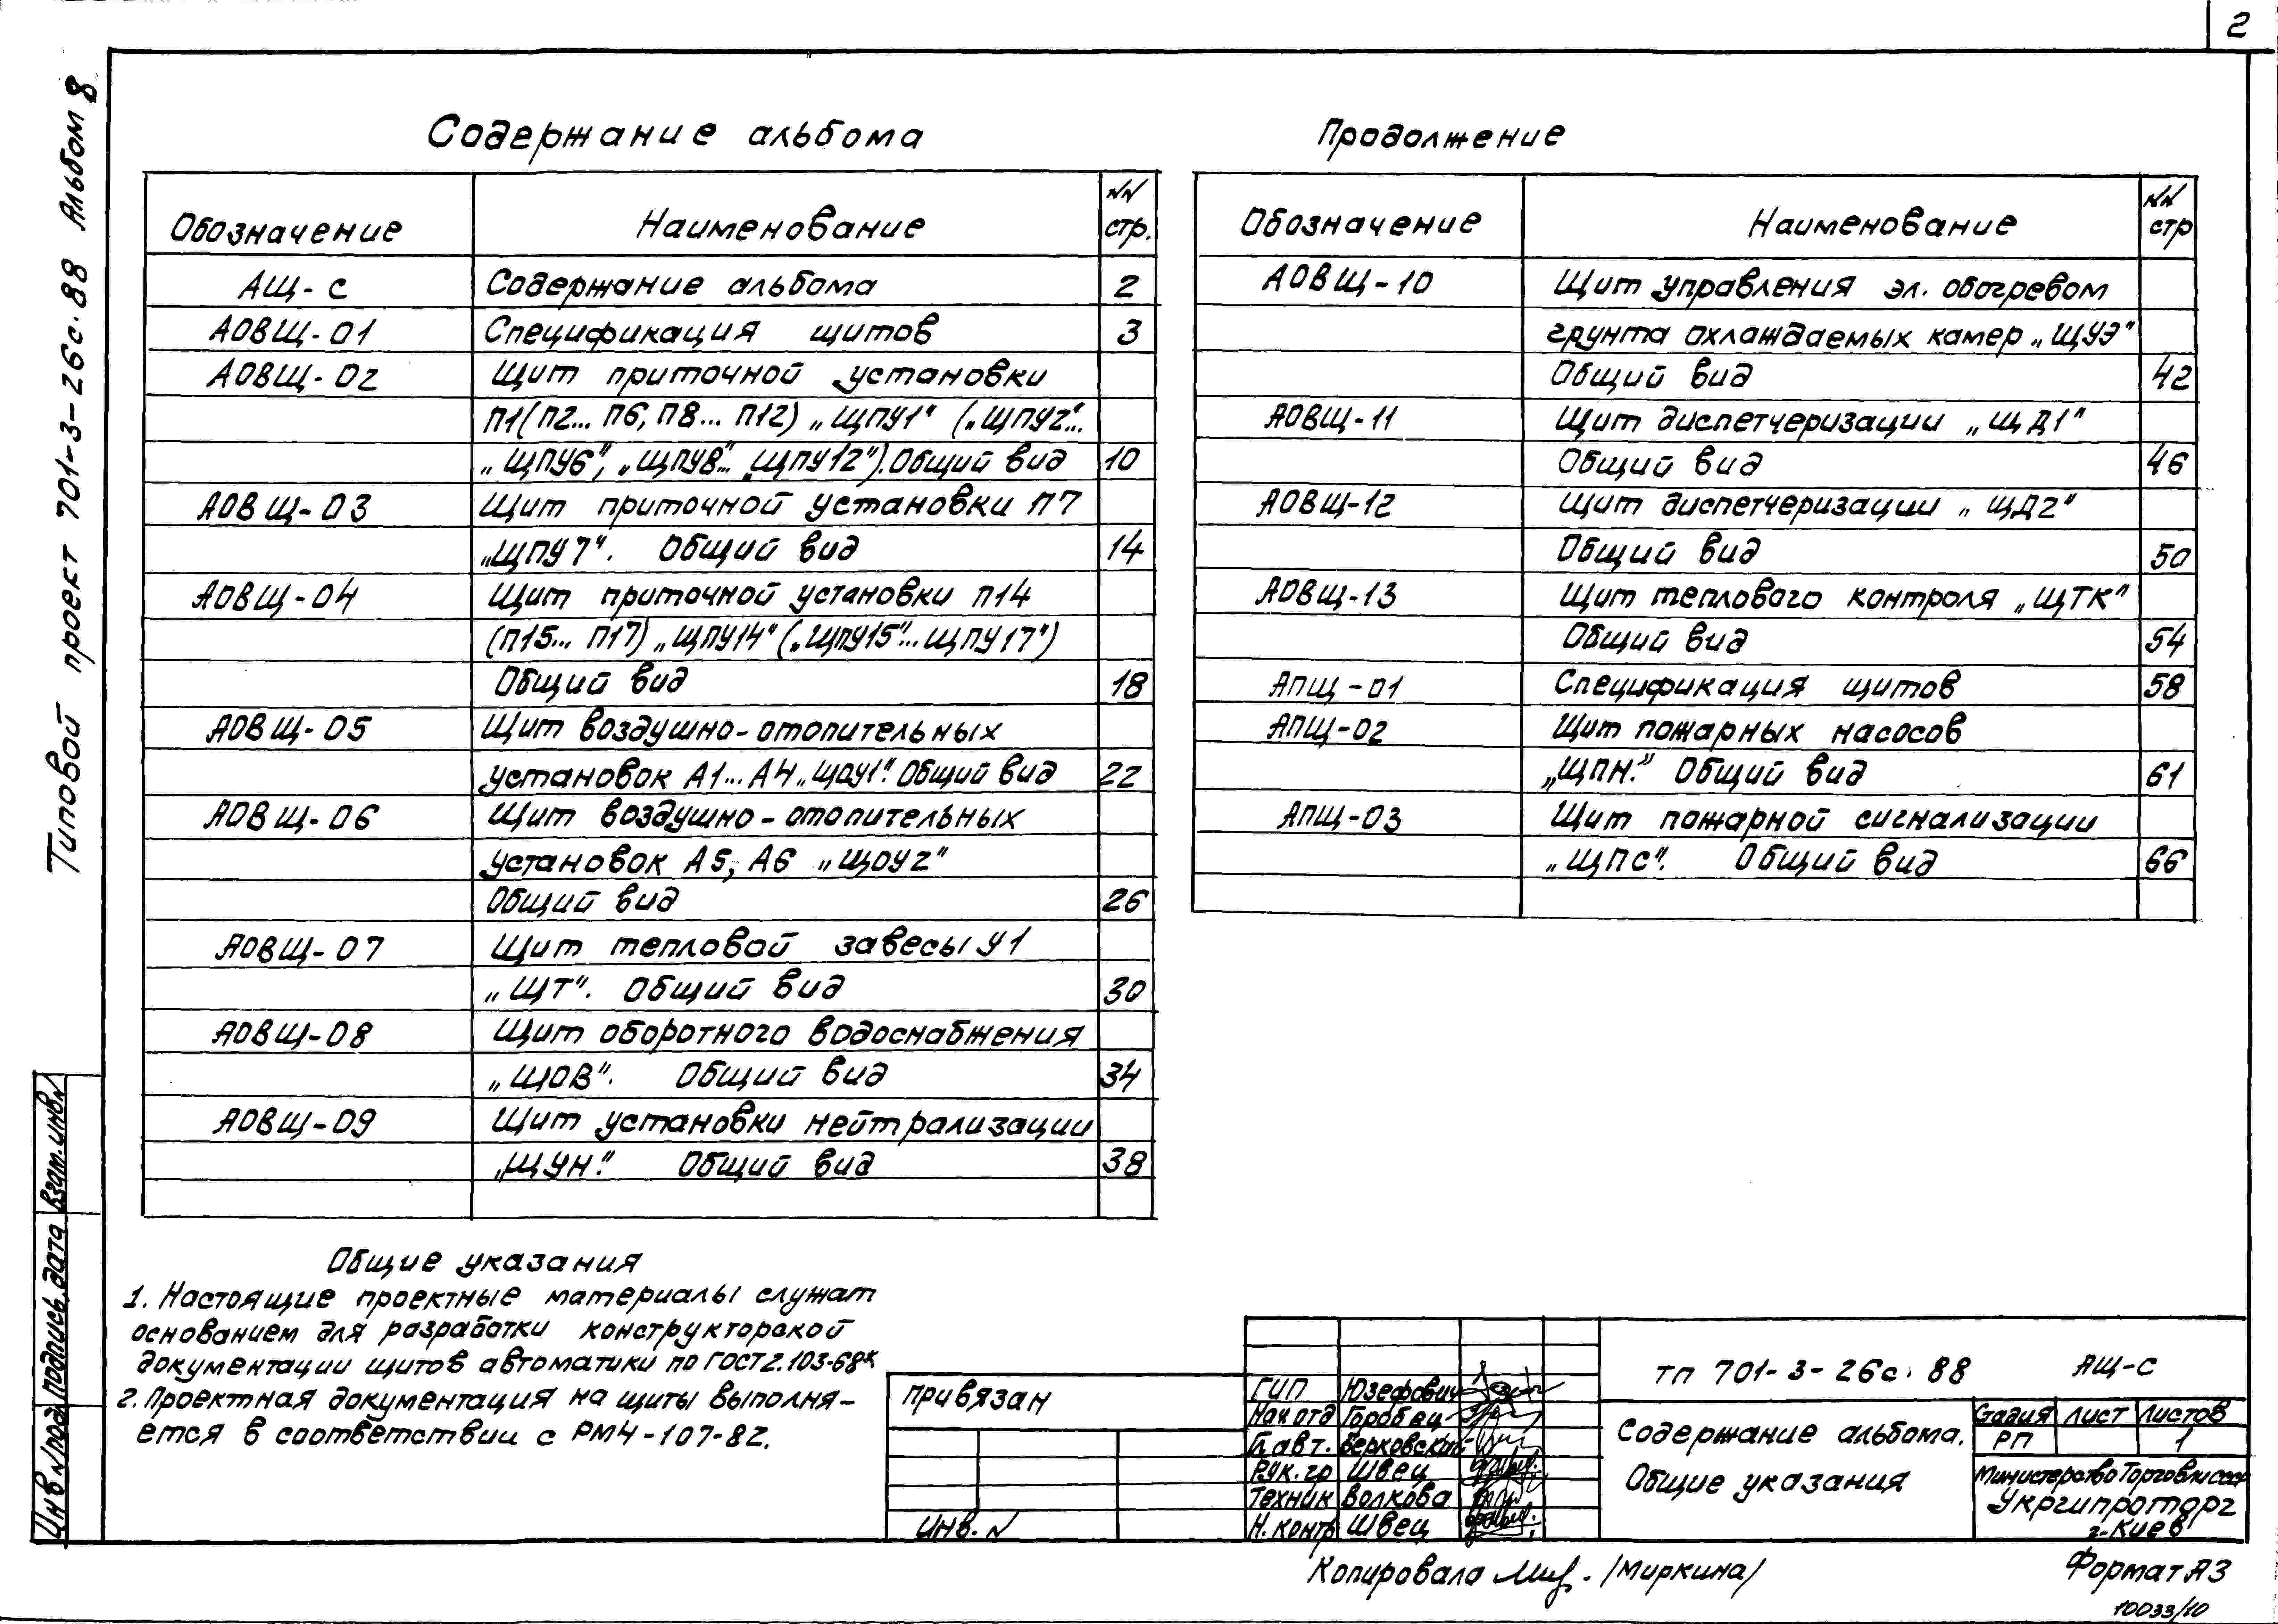 2
Типовой проект 701-3-26с.88 Альбом 8
Содержание альбома
Обозначение Наименование NN стр.
АЩ-с Содержание альбома 2
АОВЩ-01 Спецификация щитов 3
АОВЩ-02 Щит приточной установки
П1(П2... П6, П8... П12) „ЩПУ1" („ЩПУ2"...
„ЩПУ6", „ЩПУ8"... ЩПУ12"). Общий вид 10
АОВЩ-03 Щит приточной установки П7
„ЩПУ7". Общий вид 14
АОВЩ-04 Щит приточной установки П14
(П15... П17) „ЩПУ14" („ЩПУ15"... ЩПУ17")
Общий вид 18
АОВЩ-05 Щит воздушно-отопительных
установок А1... А4 „ЩОУ1". Общий вид 22
АОВЩ-06 Щит воздушно-отопительных
установок А5, А6 „ЩОУ2"
Общий вид 26
АОВЩ-07 Щит тепловой завесы У1
„ЩТ". Общий вид 30
АОВЩ-08 Щит оборотного водоснабжения
„ЩОВ". Общий вид 34
АОВЩ-09 Щит установки нейтрализации
„ЩУН". Общий вид 38
Продолжение
Обозначение Наименование NN стр
АОВЩ-10 Щит управления эл. обогревом
грунта охлаждаемых камер „ЩУЭ"
Общий вид 42
АОВЩ-11 Щит диспетчеризации „ЩД1"
Общий вид 46
АОВЩ-12 Щит диспетчеризации „ЩД2"
Общий вид 50
АОВЩ-13 Щит теплового контроля „ЩТК"
Общий вид 54
АПЩ-01 Спецификация щитов 58
АПЩ-02 Щит пожарных насосов
„ЩПН." Общий вид 61
АПЩ-03 Щит пожарной сигнализации
„ЩПС". Общий вид 66
Общие указания
1. Настоящие проектные материалы служат
основанием для разработки конструкторской
документации щитов автоматики по ГОСТ 2.103-68*
2. Проектная документация на щиты выполня-
ется в соответствии с РМ4-107-82.
Инв N под подпись, дата Взам. инв N
Привязан
Инв. N
ГИП Юзефович
Нач отд Горобец
Гл авт. Берковский
Рук. гр Швец
Техник Волкова
Н. контр Швец
ТП 701-3-26с.88 АЩ-С
Содержание альбома.
Общие указания
Стадия Лист Листов
РП 1
Министерство Торговли СССР
Укргипроторг
г. Киев
Копировала /Миркина/
Формат А3
10033/10